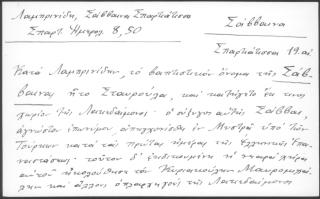 Λαμπρινίδη, Σάββαινα Σπαρτιάτισσα
Σπαρτ. Ἡμερολ. 8, 50
Σάββαινα
Σπαρτιάτισσα 19. αἰ
Κατὰ Λαμπρινίδην, τὸ βαπτιστικὸν ὄνομα τῆς Σάβ-
βαινας ἦτο Σταυρούλα, καὶ κατήγετο ἔκ τινος
χωρίου τῆς Λακεδαίμονος· ὁ σύζυγος αὐτῆς Σάββας,
ἀγνώστου ἐπωνύμου ἀπηγχονίσθη ἐν Μυστρᾷ ὑπὸ τῶν
Τούρκων κατὰ τὰς πρώτας ἡμέρας τῆς Ἑλληνικῆς Ἐπα-
ναστάσεως· τοῦτον δ' ἐκδικουμένη ἡ νεαρὰ χήρα
αὐτοῦ ἠκολούθησε τὸν Κυριακούλην Μαυρομιχά-
λην καὶ ἄλλους ὁπλαρχηγοὺς τῆς Λακεδαίμονος